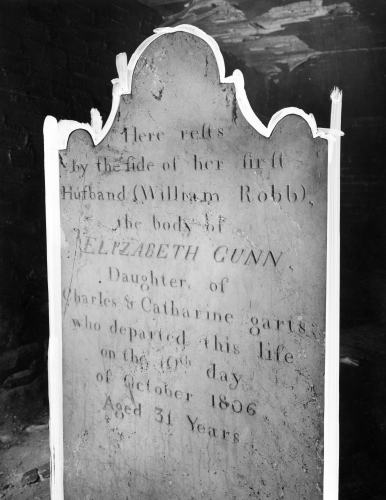 Here refts
by the fide of her firft
Hufband (William Robb),
the body of
ELIZABETH GUNN,
Daughter, of
Charles & Catharine garts,
who departed this life
on the 19th day
of October 1806
Aged 31 Years